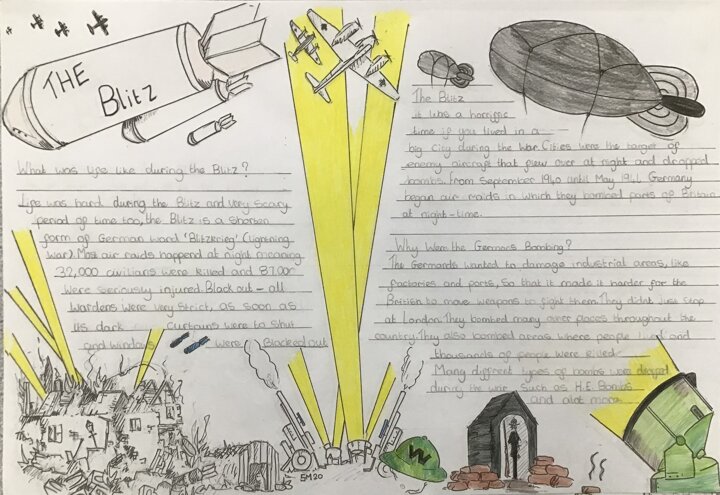 THE
Blitz
What was life like during the Blitz?
Life was hard during the Blitz and very scary
period of time too, the Blitz is a shorten
form of German word 'Blitzkrieg' (lightning
war). Most air raids happend at night meaning
32,000 civilians were killed and 87,000
were seriously injured. Black out - all
Wardens were very strict, as soon as
its dark curtains were to shut
and windows were Blacked out
The Blitz
it was a horrific
time if you lived in a
big City during the War. Cities were the target of
enemy aircraft that flew over at night and dropped
bombs. From September 1940 until May 1941 Germany
began air-raids in which they bombed parts of Britain
at night-time.
Why Were the Germans Bombing?
The Germands wanted to damage industrial areas, like
factories and ports, So that it made it harder for the
British to move weapons to fight them. They didnt just stop
at London. They bombed many over places throughout the
country. They also bombed areas where people and
thousands of people were killed.
Many different types of bombs were dropped
during the war, Such as H.E. Bombs
and alot more
W
SM20